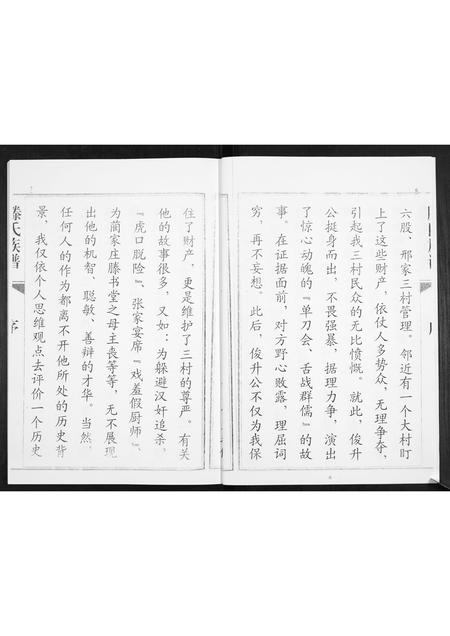 六股、邢家三村管理。邻近有一个大村盯
上了这些财产，依仗人多势众，无理争夺，
引起我三村民众的无比愤慨。就此，俊升
公挺身而出，不畏强暴，据理力争，演出
了惊心动魄的『单刀会、舌战群儒』的故
事。在证据面前，对方野心败露，理屈词
穷，再不妄想。此后，俊升公不仅为我保
住了财产，更是维护了三村的尊严。有关
他的故事很多，又如：为躲避汉奸追杀，
『虎口脱险』、张家宴席『戏羞假厨师』、
为蔺家庄滕书堂之母主丧等等，无不展现
出他的机智、聪敏、善辩的才华。当然，
任何人的作为都离不开他所处的历史背
景，我仅依个人思维观点去评价一个历史
滕氏族谱
序